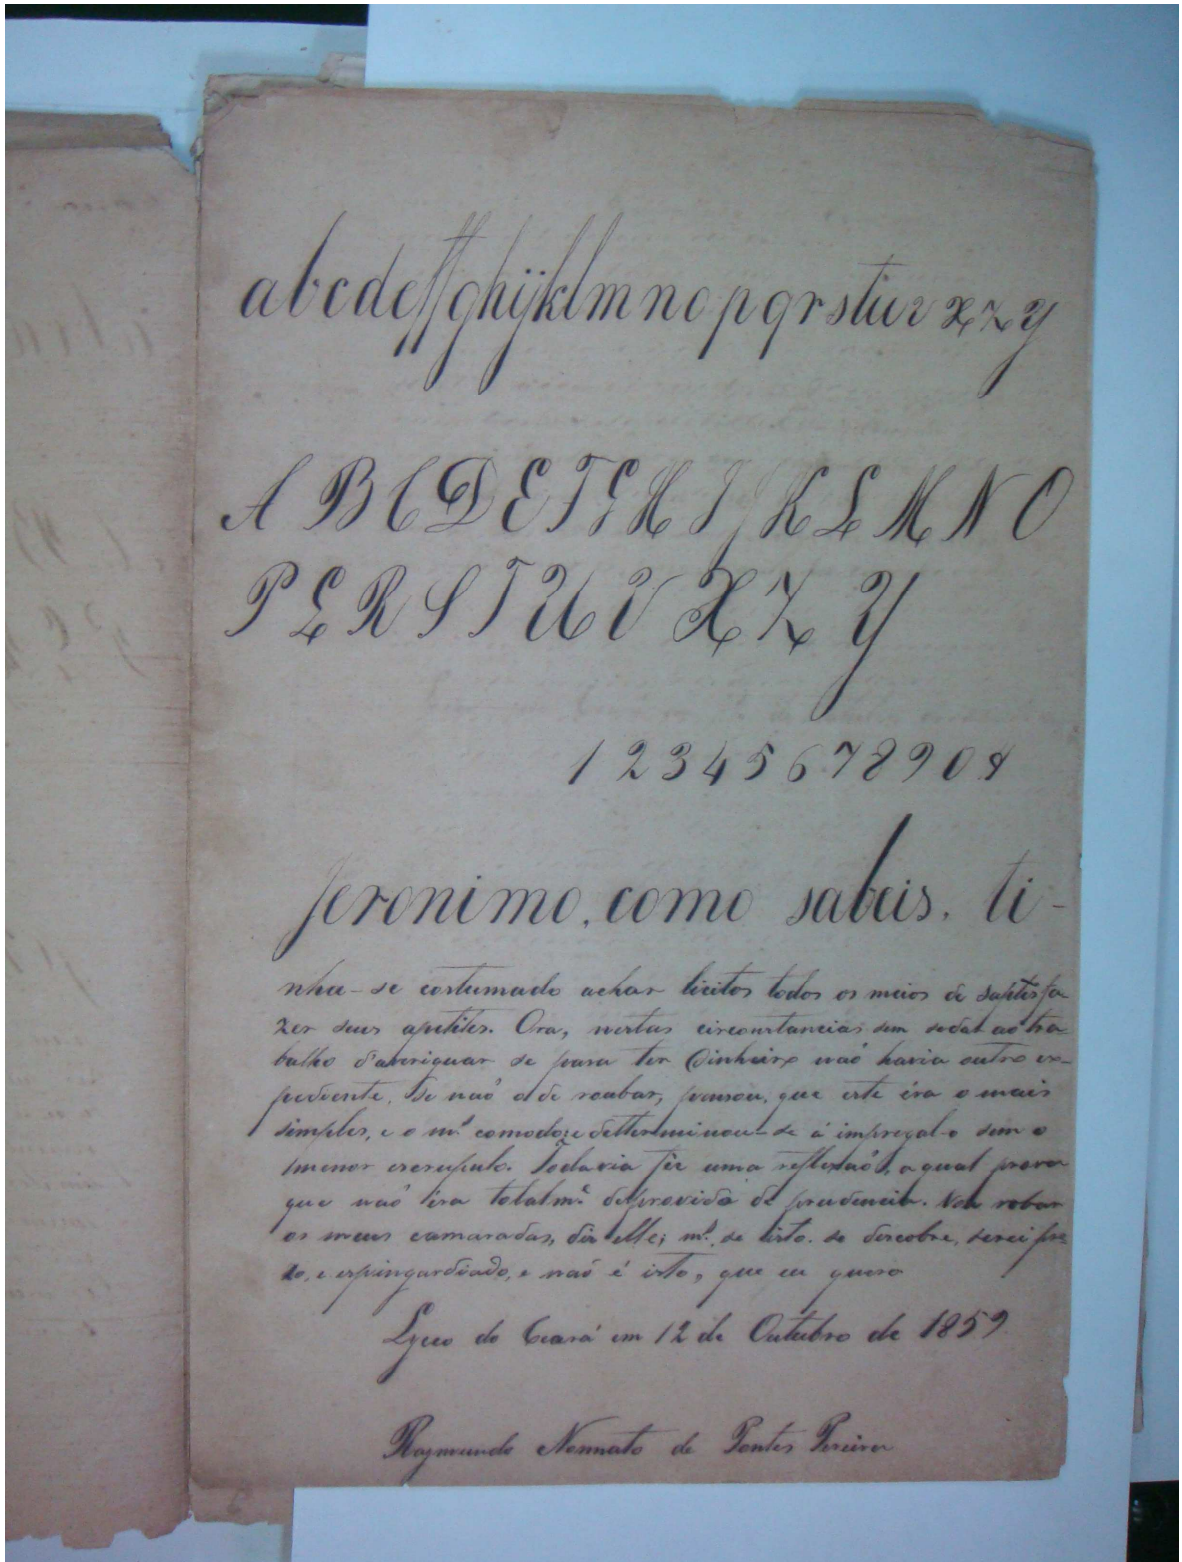 abcdeffghijklmnopqrstuv x z y
A B C D E F G H I J K L M N O
P Q R S T U V X Z Y
1 2 3 4 5 6 7 8 9 0 8
Jeronimo, como sabeis, ti-
nha-se costumado achar licitos todos os meios de saptisfa-
zer seus apetites. Ora, circonstancias sem sedar ao tra-
balho d'averiguar se para ter dinheiro naõ havia outro ex-
pediente, se naõ o de roubar, pensou, que este éra o mais
simples, e o m.º comodo; e detterminou-se á impregal-o sem o
menor escrupulo. Todavia fêz uma reflexaõ, a qual prova
que naõ éra totalm.e desprovido de prudencia. Vou robar
os meus camaradas, diz elle; m.s, se isto se descobre, serei pre
zo, e espingardiado, e naõ é isto, que eu quero
Lyceo do Ceará em 12 de Outubro de 1859
Raymundo Nonnato de Pontes Pereira